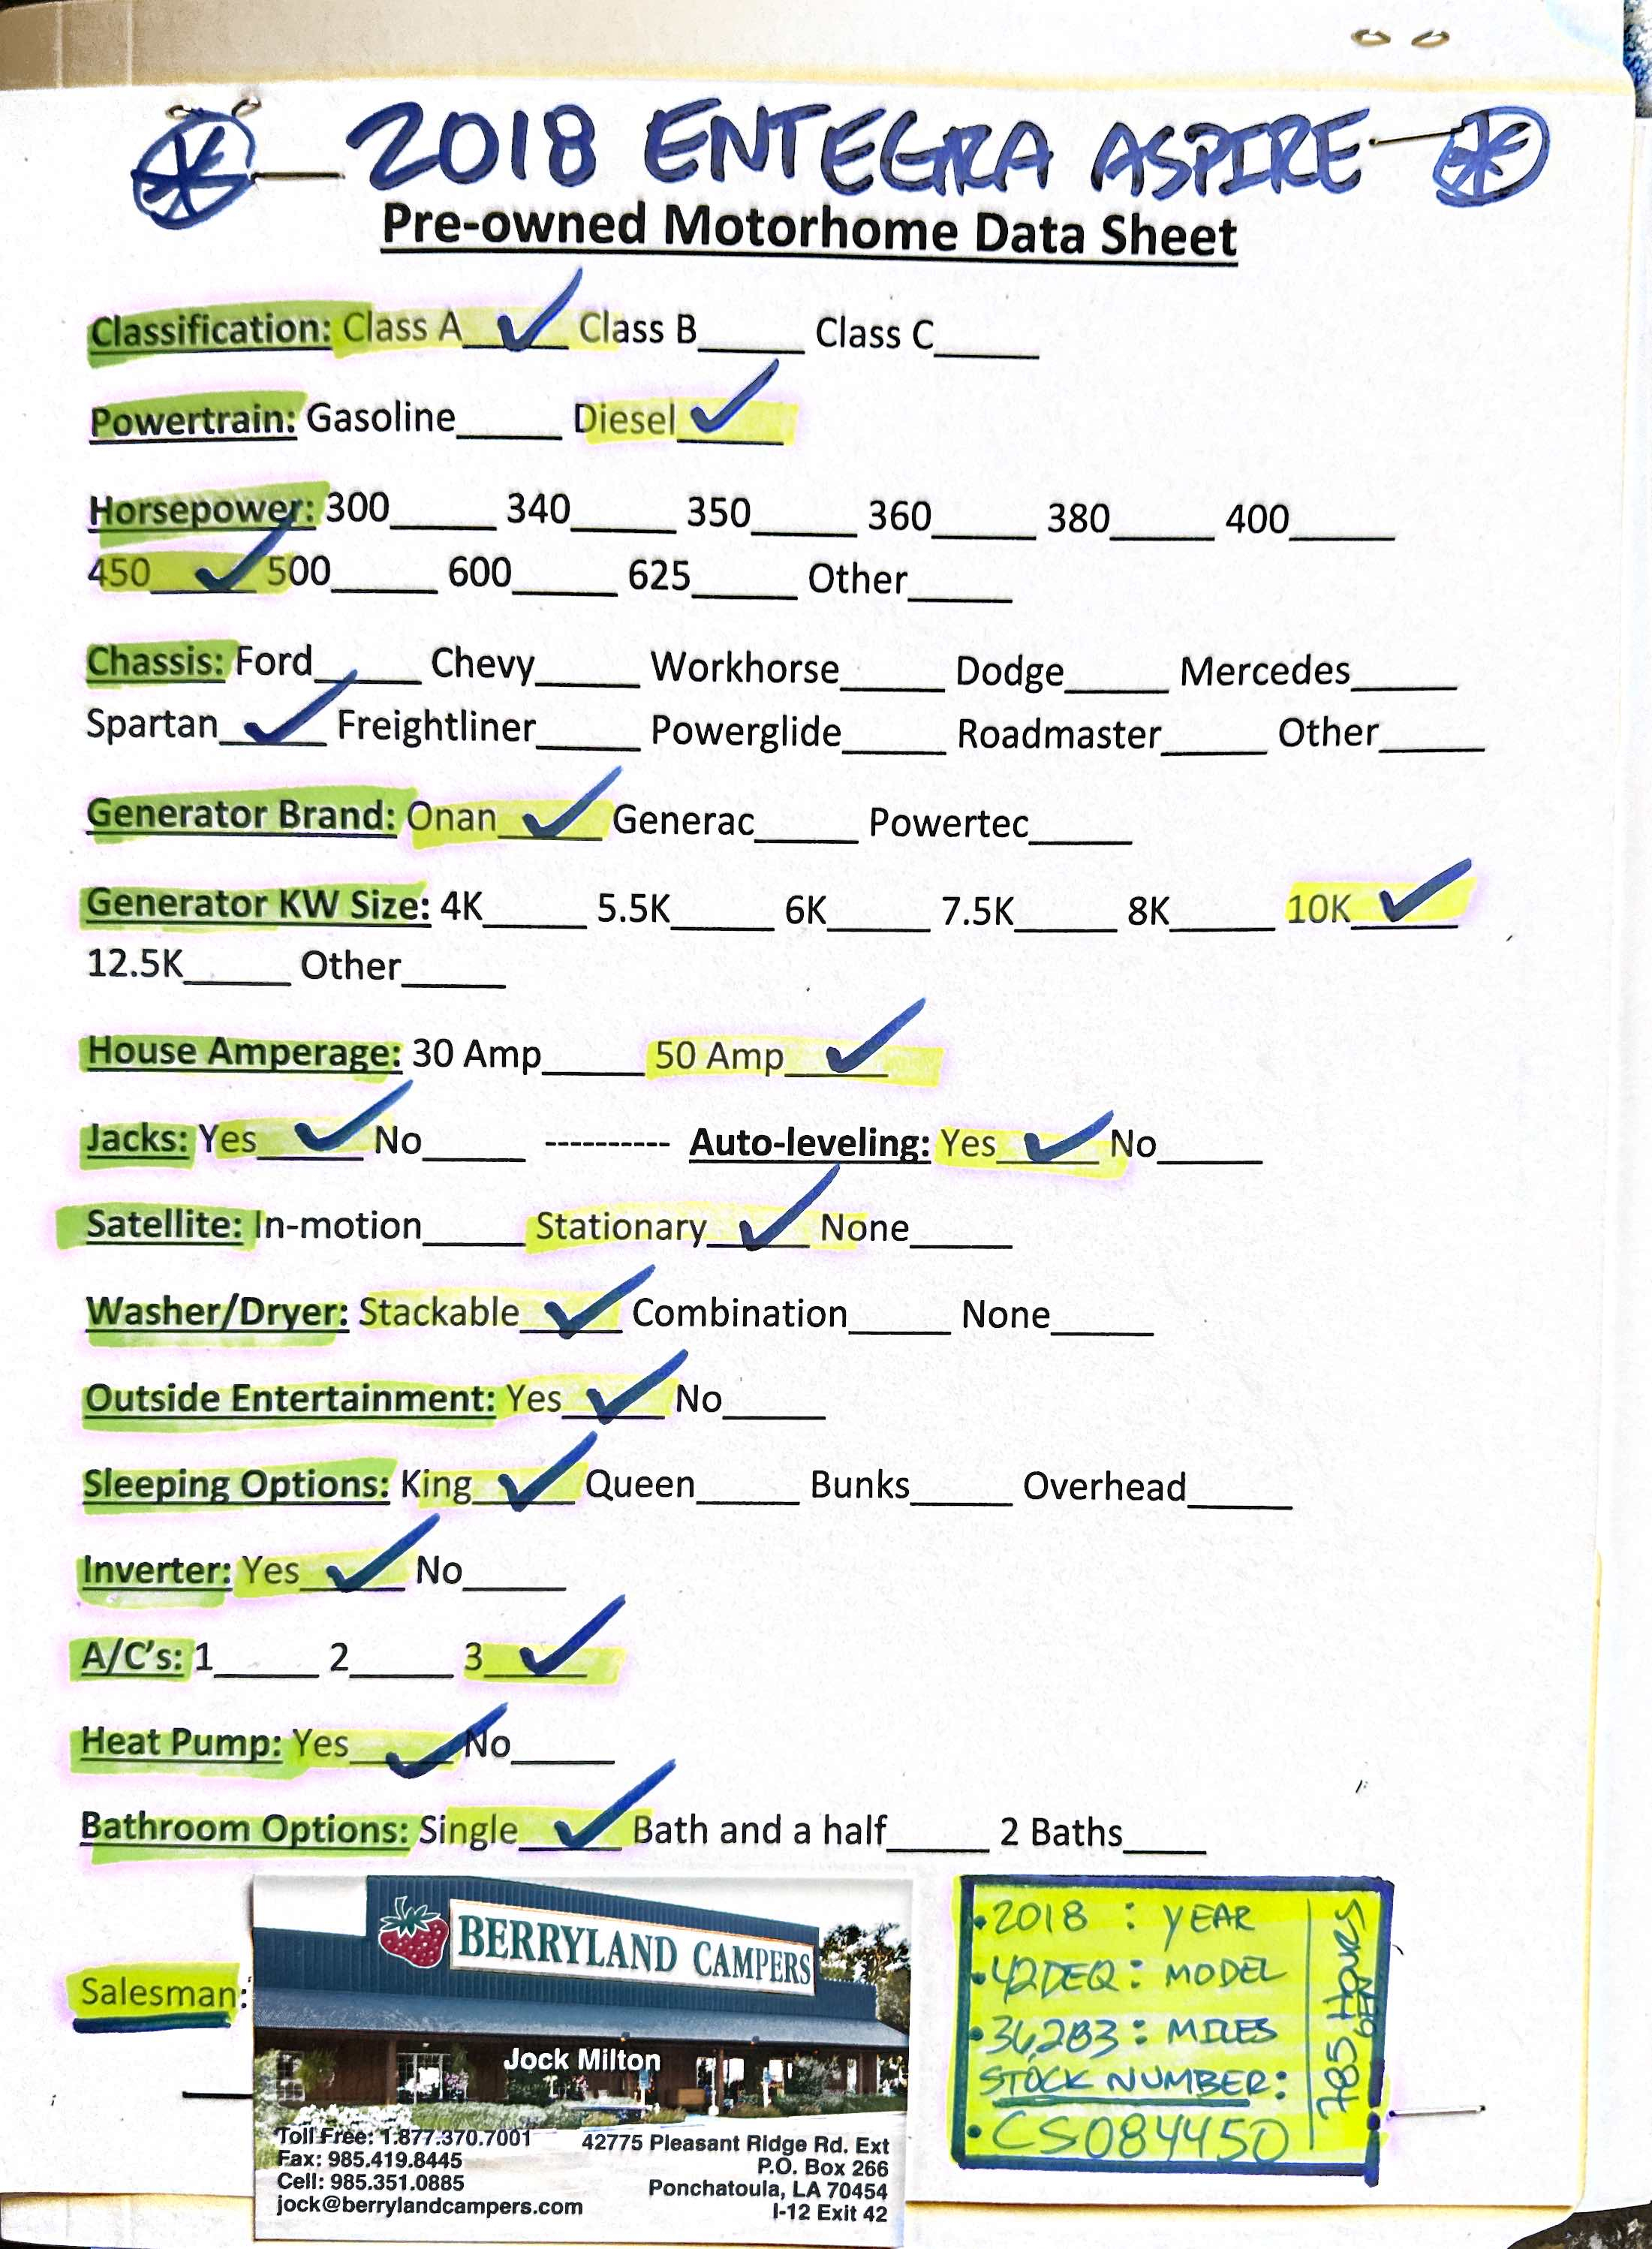 2018 ENTEGRA ASPIRE
Pre-owned Motorhome Data Sheet
Classification: Class A ✓ Class B_____ Class C_____
Powertrain: Gasoline_____ Diesel ✓
Horsepower: 300_____ 340_____ 350_____ 360_____ 380_____ 400_____
450 ✓ 500_____ 600_____ 625_____ Other_____
Chassis: Ford_____ Chevy_____ Workhorse_____ Dodge_____ Mercedes_____
Spartan ✓ Freightliner_____ Powerglide_____ Roadmaster_____ Other_____
Generator Brand: Onan ✓ Generac_____ Powertec_____
Generator KW Size: 4K_____ 5.5K_____ 6K_____ 7.5K_____ 8K_____ 10K ✓
12.5K_____ Other_____
House Amperage: 30 Amp_____ 50 Amp ✓
Jacks: Yes ✓ No_____ ---------- Auto-leveling: Yes ✓ No_____
Satellite: In-motion_____ Stationary ✓ None_____
Washer/Dryer: Stackable ✓ Combination_____ None_____
Outside Entertainment: Yes ✓ No_____
Sleeping Options: King ✓ Queen_____ Bunks_____ Overhead_____
Inverter: Yes ✓ No_____
A/C's: 1_____ 2_____ 3 ✓
Heat Pump: Yes ✓ No_____
Bathroom Options: Single ✓ Bath and a half_____ 2 Baths____
Salesman:
BERRYLAND CAMPERS
Jock Milton
Toll Free: 1.877.370.7001
Fax: 985.419.8445
Cell: 985.351.0885
jock@berrylandcampers.com
42775 Pleasant Ridge Rd. Ext
P.O. Box 266
Ponchatoula, LA 70454
I-12 Exit 42
•2018 : YEAR
•42DEQ : MODEL
•36,283 : MILES
STOCK NUMBER:
•CS084450
785 HOURS
GEN